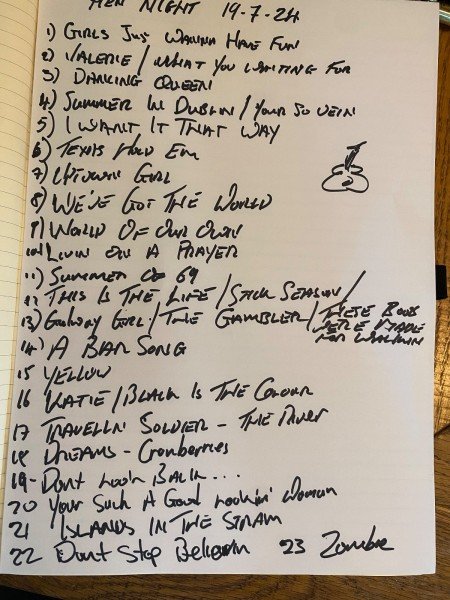 HEN NIGHT 19-7-24
1) GIRLS JUS WANNA HAVE FUN
2) VALERIE / WHAT YOU WAITING FOR
3) DANCING QUEEN
4) SUMMER IN DUBLIN / YOUR SO VEIN
5) I WANT IT THAT WAY
6) TEXAS HOLD EM
7) UPTOWN GIRL
8) WE'VE GOT THE WORLD
9) WORLD OF OUR OWN
10) LIVIN ON A PRAYER
11) SUMMER OF 69
12 THIS IS THE LIFE / STICK SEASON /
13) GALWAY GIRL / THE GAMBLER / THESE BOOTS
WERE MADE
FOR WALKIN
14) A BAR SONG
15 YELLOW
16 KATIE / BLACK IS THE COLOUR
17 TRAVELLIN SOLDIER - THE RIVER
18 DREAMS - Cranberries
19 - DONT LOOK BACK...
20 YOUR SUCH A GOOD LOOKIN' WOMAN
21 ISLANDS IN THE STREAM
22 Dont Stop Believin 23 Zombie